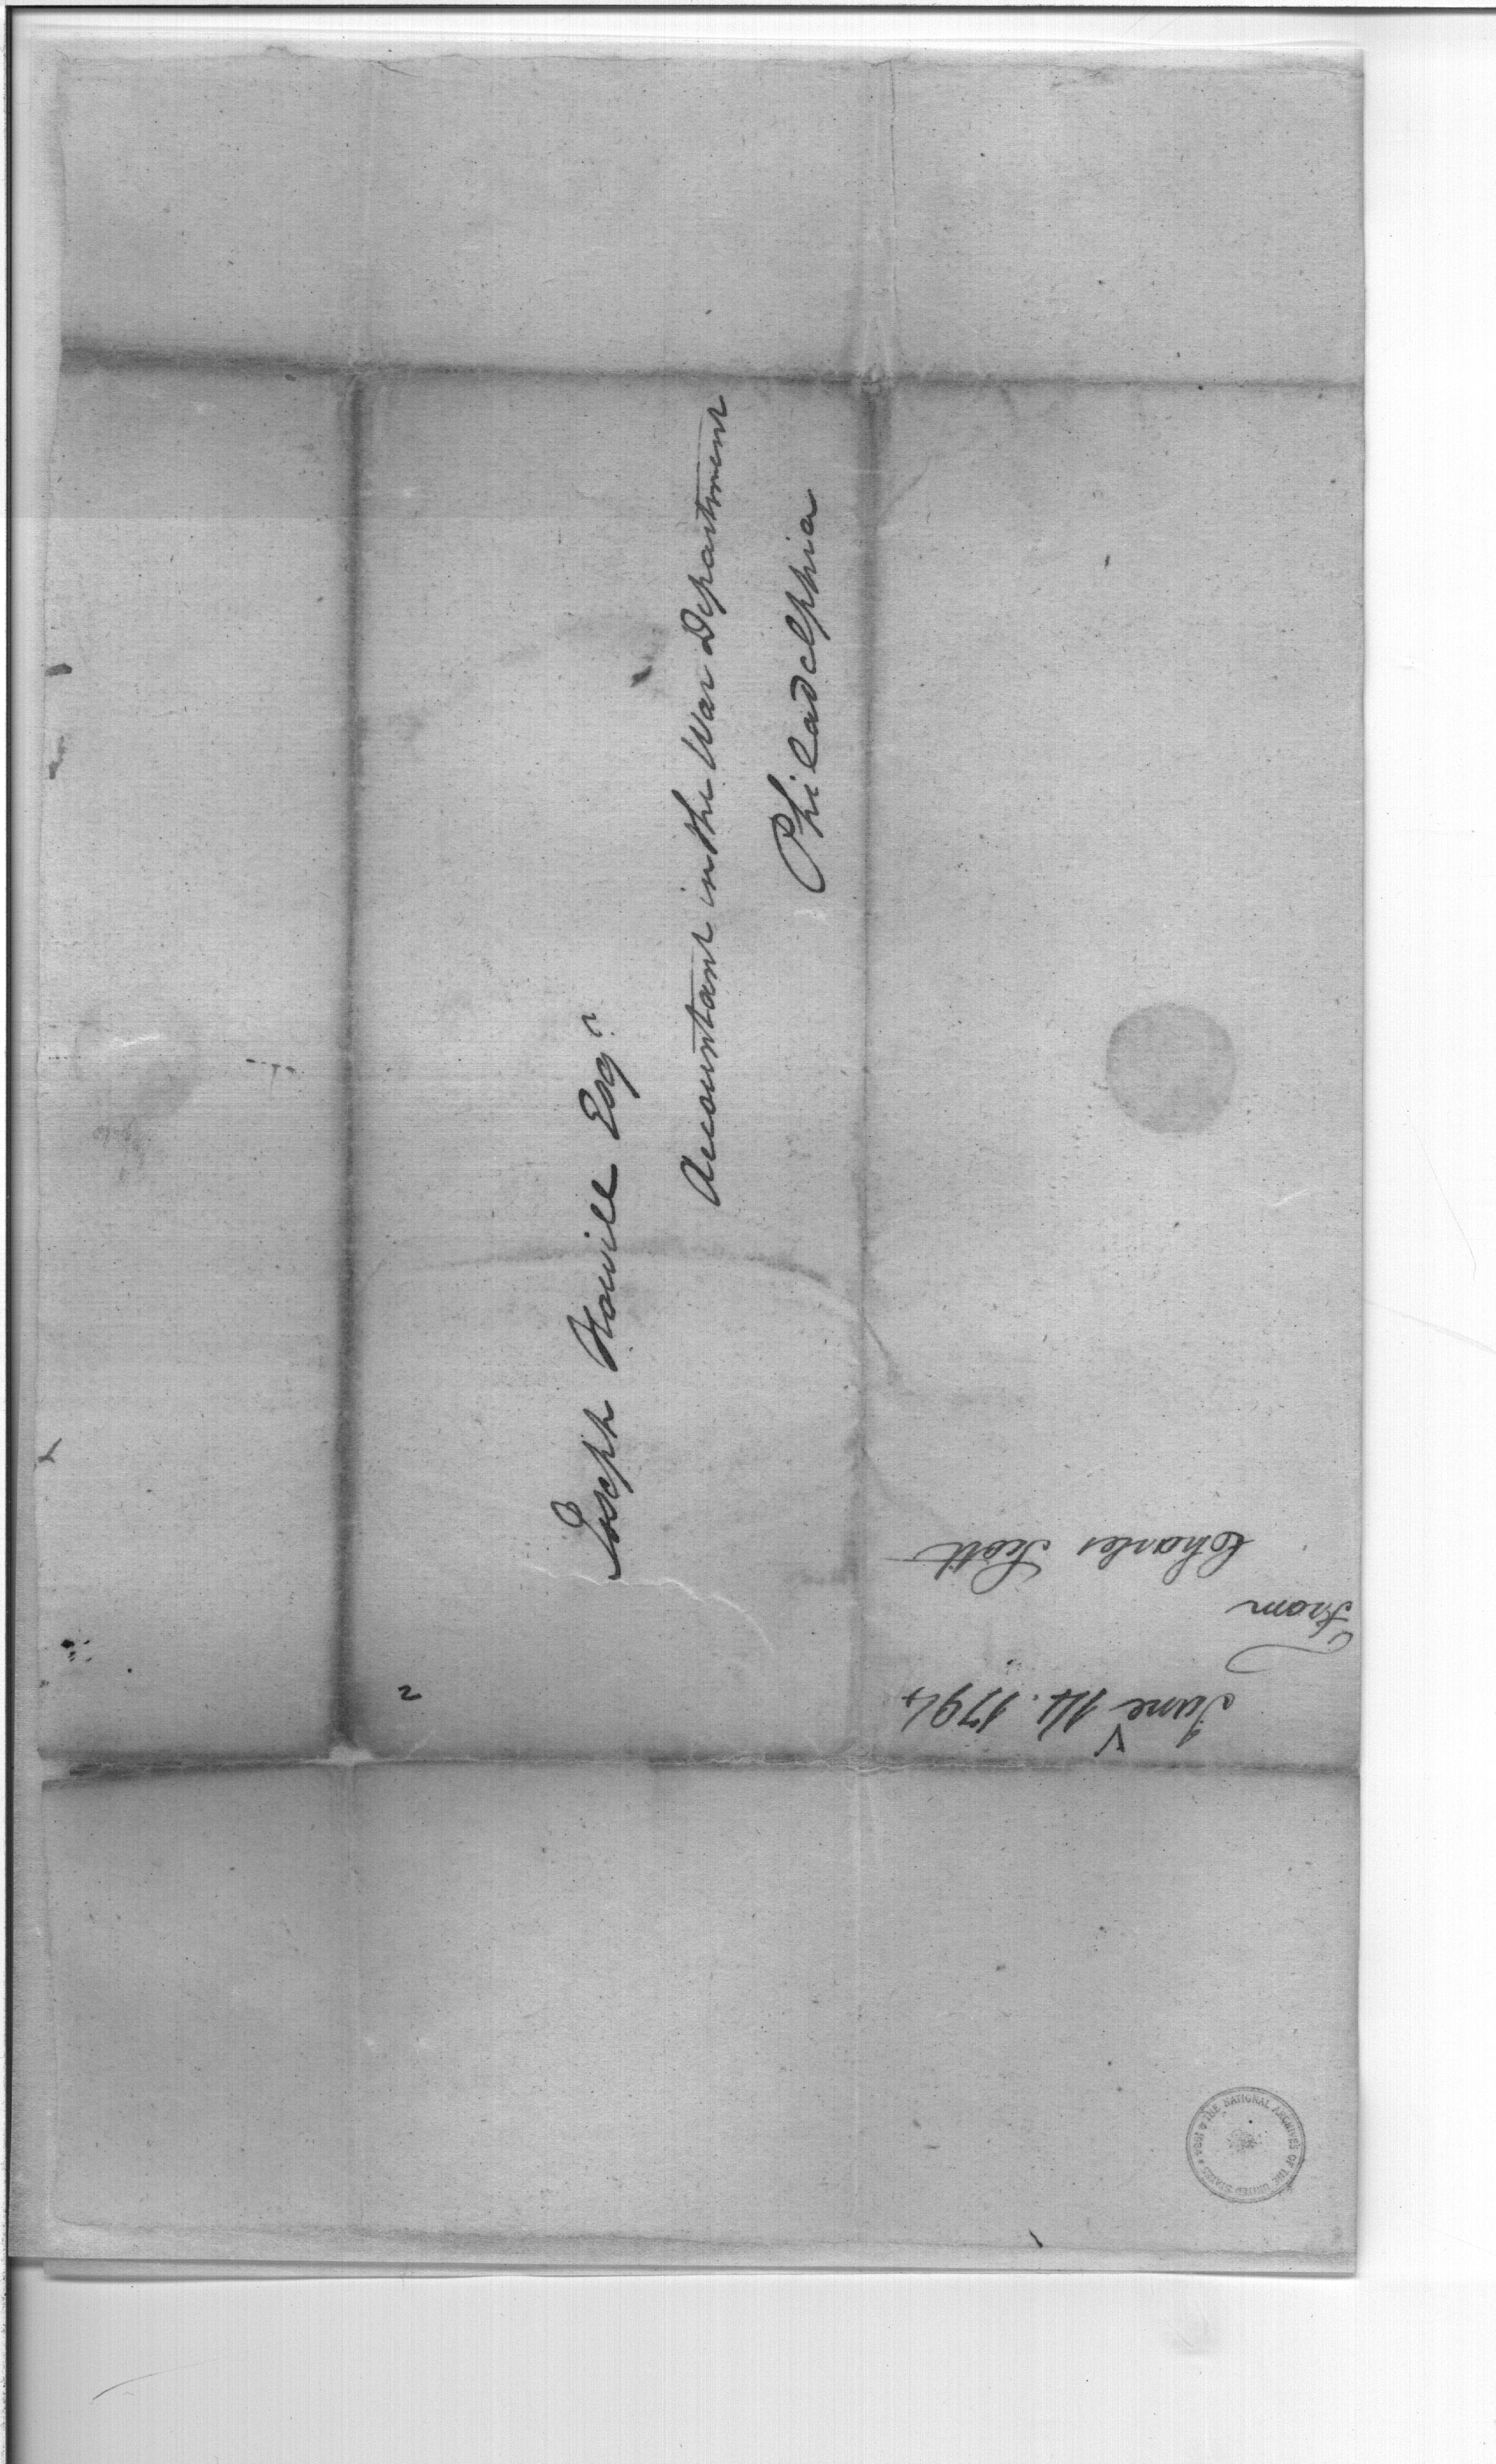 Joseph Howell Esqr.
Accountant in the War Department
Philadelphia
June 14. 1794
From
Charles Scott
2
THE NATIONAL ARCHIVES OF THE UNITED STATES